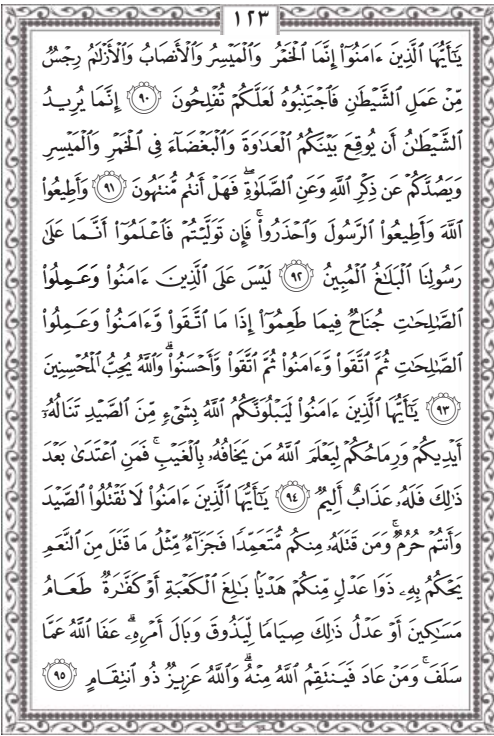 ١٢٣
يَٰٓأَيُّهَا ٱلَّذِينَ ءَامَنُوٓا۟ إِنَّمَا ٱلْخَمْرُ وَٱلْمَيْسِرُ وَٱلْأَنصَابُ وَٱلْأَزْلَٰمُ رِجْسٌ
مِّنْ عَمَلِ ٱلشَّيْطَٰنِ فَٱجْتَنِبُوهُ لَعَلَّكُمْ تُفْلِحُونَ ٩٠ إِنَّمَا يُرِيدُ
ٱلشَّيْطَٰنُ أَن يُوقِعَ بَيْنَكُمُ ٱلْعَدَٰوَةَ وَٱلْبَغْضَآءَ فِى ٱلْخَمْرِ وَٱلْمَيْسِرِ
وَيَصُدَّكُمْ عَن ذِكْرِ ٱللَّهِ وَعَنِ ٱلصَّلَوٰةِ ۖ فَهَلْ أَنتُم مُّنتَهُونَ ٩١ وَأَطِيعُوا۟
ٱللَّهَ وَأَطِيعُوا۟ ٱلرَّسُولَ وَٱحْذَرُوا۟ ۚ فَإِن تَوَلَّيْتُمْ فَٱعْلَمُوٓا۟ أَنَّمَا عَلَىٰ
رَسُولِنَا ٱلْبَلَٰغُ ٱلْمُبِينُ ٩٢ لَيْسَ عَلَى ٱلَّذِينَ ءَامَنُوا۟ وَعَمِلُوا۟
ٱلصَّٰلِحَٰتِ جُنَاحٌ فِيمَا طَعِمُوٓا۟ إِذَا مَا ٱتَّقَوا۟ وَّءَامَنُوا۟ وَعَمِلُوا۟
ٱلصَّٰلِحَٰتِ ثُمَّ ٱتَّقَوا۟ وَّءَامَنُوا۟ ثُمَّ ٱتَّقَوا۟ وَّأَحْسَنُوا۟ ۗ وَٱللَّهُ يُحِبُّ ٱلْمُحْسِنِينَ
٩٣ يَٰٓأَيُّهَا ٱلَّذِينَ ءَامَنُوا۟ لَيَبْلُوَنَّكُمُ ٱللَّهُ بِشَىْءٍ مِّنَ ٱلصَّيْدِ تَنَالُهُۥٓ
أَيْدِيكُمْ وَرِمَاحُكُمْ لِيَعْلَمَ ٱللَّهُ مَن يَخَافُهُۥ بِٱلْغَيْبِ ۚ فَمَنِ ٱعْتَدَىٰ بَعْدَ
ذَٰلِكَ فَلَهُۥ عَذَابٌ أَلِيمٌ ٩٤ يَٰٓأَيُّهَا ٱلَّذِينَ ءَامَنُوا۟ لَا تَقْتُلُوا۟ ٱلصَّيْدَ
وَأَنتُمْ حُرُمٌ ۚ وَمَن قَتَلَهُۥ مِنكُم مُّتَعَمِّدًا فَجَزَآءٌ مِّثْلُ مَا قَتَلَ مِنَ ٱلنَّعَمِ
يَحْكُمُ بِهِۦ ذَوَا عَدْلٍ مِّنكُمْ هَدْيًۢا بَٰلِغَ ٱلْكَعْبَةِ أَوْ كَفَّٰرَةٌ طَعَامُ
مَسَٰكِينَ أَوْ عَدْلُ ذَٰلِكَ صِيَامًا لِّيَذُوقَ وَبَالَ أَمْرِهِۦ ۗ عَفَا ٱللَّهُ عَمَّا
سَلَفَ ۚ وَمَنْ عَادَ فَيَنتَقِمُ ٱللَّهُ مِنْهُ ۗ وَٱللَّهُ عَزِيزٌ ذُو ٱنتِقَامٍ ٩٥